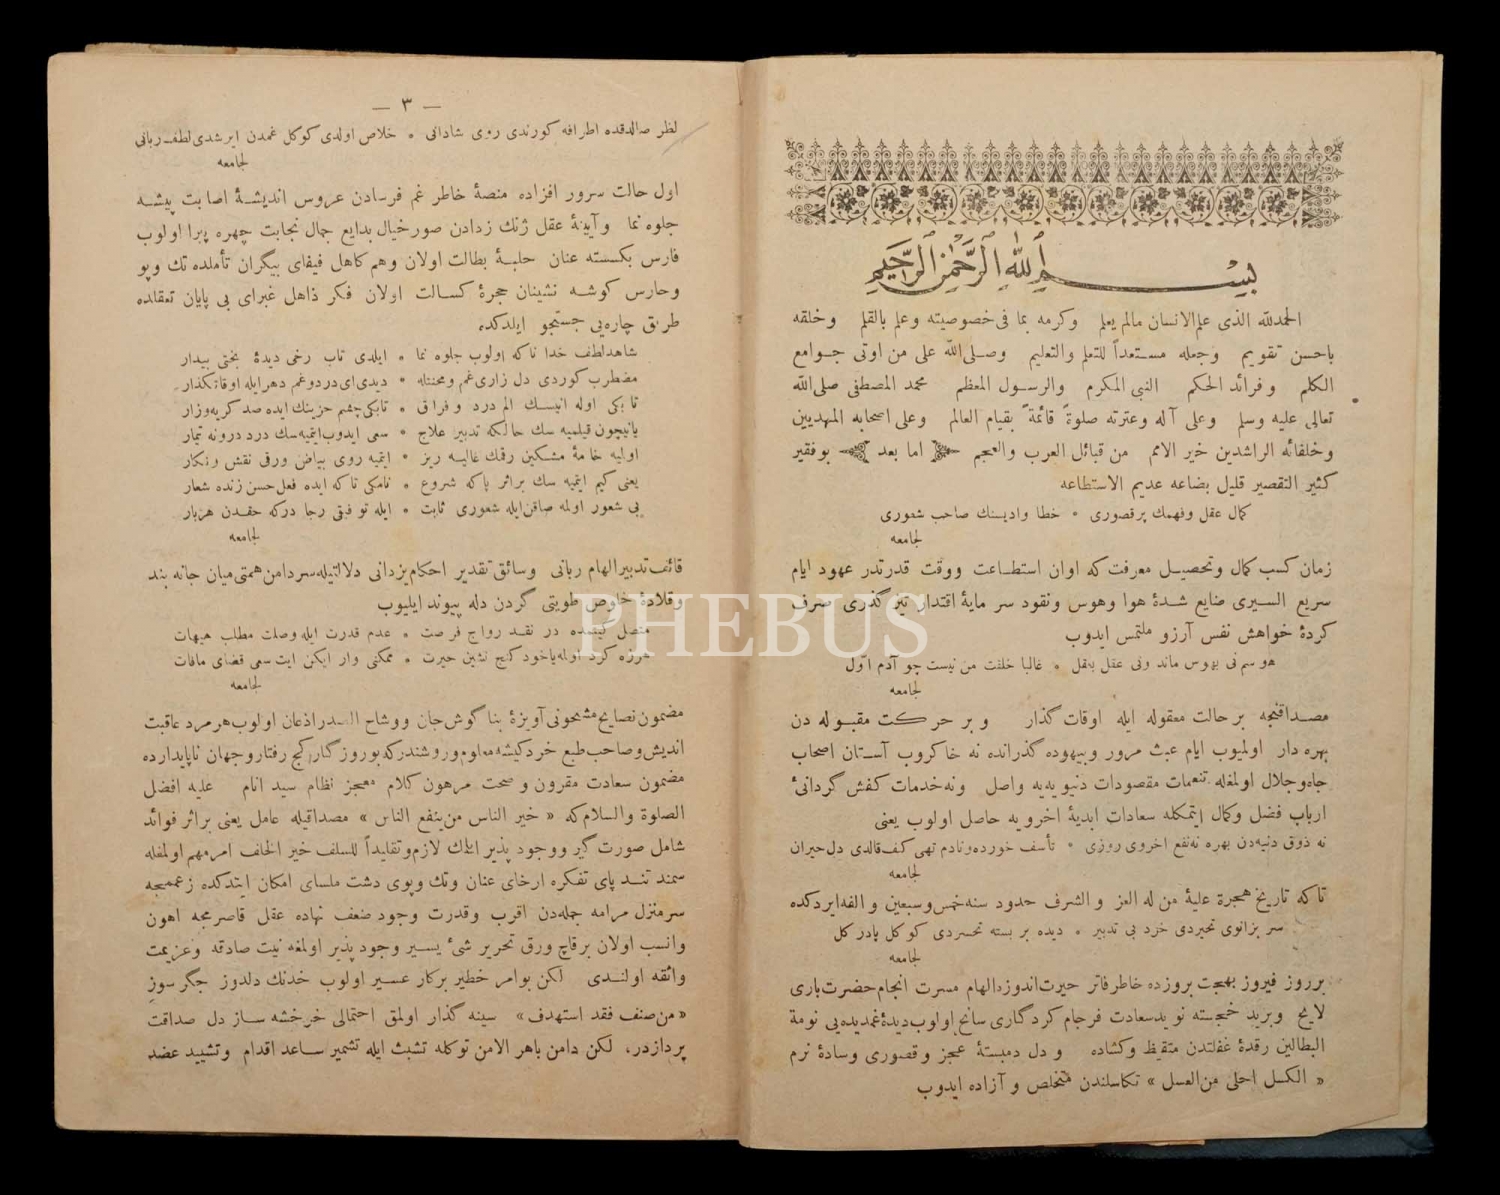 بسم الله الرحمن الرحيم
الحمدلله الذى علم الانسان مالم يعلم وكرمه بما فى خصوصيته وعلم بالقلم وخلقه
باحسن تقويم وجعله مستعداً للتعلم والتعليم وصلى الله على من اوتى جوامع
الكلم وفرائد الحكم النبى المكرم والرسول المعظم محمد المصطفى صلى الله
تعالى عليه وسلم وعلى آله وعترته صلوة قائمة بقيام العالم وعلى اصحابه المهديين
وخلفائه الراشدين خير الامم من قبائل العرب والعجم اما بعد بوفقير
كثير التقصير قليل بضاعه عديم الاستطاعه
كمال عقل وفهمك پر قصورى * خطا واديسنك صاحب شعورى
لجامعه
زمان كسب كمال وتحصيل معرفت كه اوان استطاعت ووقت قدرتدر عهود ايام
سريع السيرى ضايع شدهٔ هوا وهوس ونقود سر مايهٔ اقتدار تيز گذرى صرف
كردهٔ خواهش نفس آرزو ملتمس ايدوب
هوسم نى بهوس ماند ونى عقل بعقل * غالبا خلقت من نيست چو آدم اوّل
لجامعه
مصداقنجه بر حالت معقوله ايله اوقات گذار و بر حركت مقبوله دن
بهره دار اولميوب ايام عبث مرور وبيهوده گذرانده نه خاكروب آستان اصحاب
جاه وجلال اولمغله تنعمات مقصودات دنيويه يه واصل ونه خدمات كفش گردانىٔ
ارباب فضل وكمال ايتمكله سعادات ابديهٔ اخرويه حاصل اولوب يعنى
نه ذوق دنيه دن بهره نه نفع اخروى روزى * تأسف خورده ونادم تهى كف قالدى دل حيران
لجامعه
تا كه تاريخ هجرة عليهٔ من له العز والشرف حدود سنه خمس وسبعين و الفه ايردكده
سر بزانوى تحيردى خرد بى تدبير * ديده بر بسته تحسردى كوكل پادر كل
لجامعه
بر روز فيروز بهجت بروزده خاطر فاتر حيرت اندوزه الهام مسرت انجام حضرت بارى
لايح وبريد خجسته نويد سعادت فرجام كردگارى سانح اولوب ديدهٔ غمديده يى نومة
البطالين رقدهٔ غفلتدن متقيظ وكشاده و دل دمبستهٔ عجز و قصورى وسادهٔ نرم
« الكسل احلى من العسل » تكاسلندن متخلص و آزاده ايدوب
— ٣ —
نظر صالدقده اطرافه كورندى روى شادانى * خلاص اولدى كوكل غمدن ايرشدى لطف ربانى
لجامعه
اول حالت سرور افزاده منصهٔ خاطر غم فرسادن عروس انديشهٔ اصابت پيشه
جلوه نما وآيينهٔ عقل ژنك زدادن صور خيال بدايع جمال نجابت چهره پيرا اولوب
فارس بكسسته عنان حلبهٔ بطالت اولان وهم كاهل فيفاى بيگران تأملده تك وپو
وحارس كوشه نشينان حجرهٔ كسالت اولان فكر ذاهل غبراى بى پايان تعقلده
طريق چاره يى جستجو ايلدكده
شاهد لطف خدا ناكه اولوب جلوه نما * ايلدى تاب رخى ديدهٔ بختى بيدار
مضطرب كوردى دل زارى غم ومحنتله * ديدى اى درد وغم دهر ايله اوقاتگذار
تا بكى اوله انيسك الم درد وفراق * تابكى چشم حزينك ايده صد كريه وزار
يا نيچون قيلميه سك حالكه تدبير علاج * سعى ايدوب ايتميه سك درد درونه تيمار
اوليه خامهٔ مشكين رقمك غاليه ريز * ايتميه روى بياض ورقى نقش ونكار
يعنى كيم ايتميه سك بر اثر پاكه شروع * نامكى تا كه ايده فعل حسن زنده شعار
بى شعور اولمه صاقن ايله شعورى ثابت * ايله توفيقى رجا دركه حقدن هر بار
لجامعه
قائف تدبير الهام ربانى وسائق تقدير احكام يزدانى دلالتيله سر دامن همتى ميان جانه بند
وقلادهٔ خلوص طويتى گردن دله پيوند ايليوب
در نقد رواج فرصت * عدم قدرت ايله وصلت مطلب هيهات
هرزه كرد اولمه ياخود كنج نشين حيرت * ممكنى وار ايكن ايت سعى قضاى مافات
لجامعه
مضمون نصايح مشحونى آويزهٔ بنا گوش جان ووشاح الصدر اذعان اولوب هر مرد عاقبت
انديش وصاحب طبع خرد كيشه معلوم و روشندر كه بو روزگار كج رفتار وجهان ناپايدارده
مضمون سعادت مقرون و صحت مرهون كلام معجز نظام سيد انام عليه افضل
الصلوة والسلام كه « خير الناس من ينفع الناس » مصداقيله عامل يعنى بر اثر فوائد
شامل صورت گير ووجود پذير ايلك لازم وتقليداً للسلف خير الخلف امر مهم اولمغله
سمند تند پاى تفكره ارخاى عنان وتك وپوى دشت ملساى امكان ايتدكده زعمجه
سر منزل مرامه جمله دن اقرب وقدرت وجود ضعف نهاده عقل قاصر مجه اهون
وانسب اولان بر قاچ ورق تحرير شئ يسير وجود پذير اولمغه نيت صادقه وعزيمت
واثقه اولندى لكن بو امر خطير بر كار عسير اولوب خدنك دلدوز جگر سوز
« من صنف فقد استهدف » سينه گذار اولمق احتمالى خرخشه ساز دل صداقت
پردازدر، لكن دامن باهر الامن توكله تشبث ايله تشمير ساعد اقدام وتشييد عضد
PHEBUS